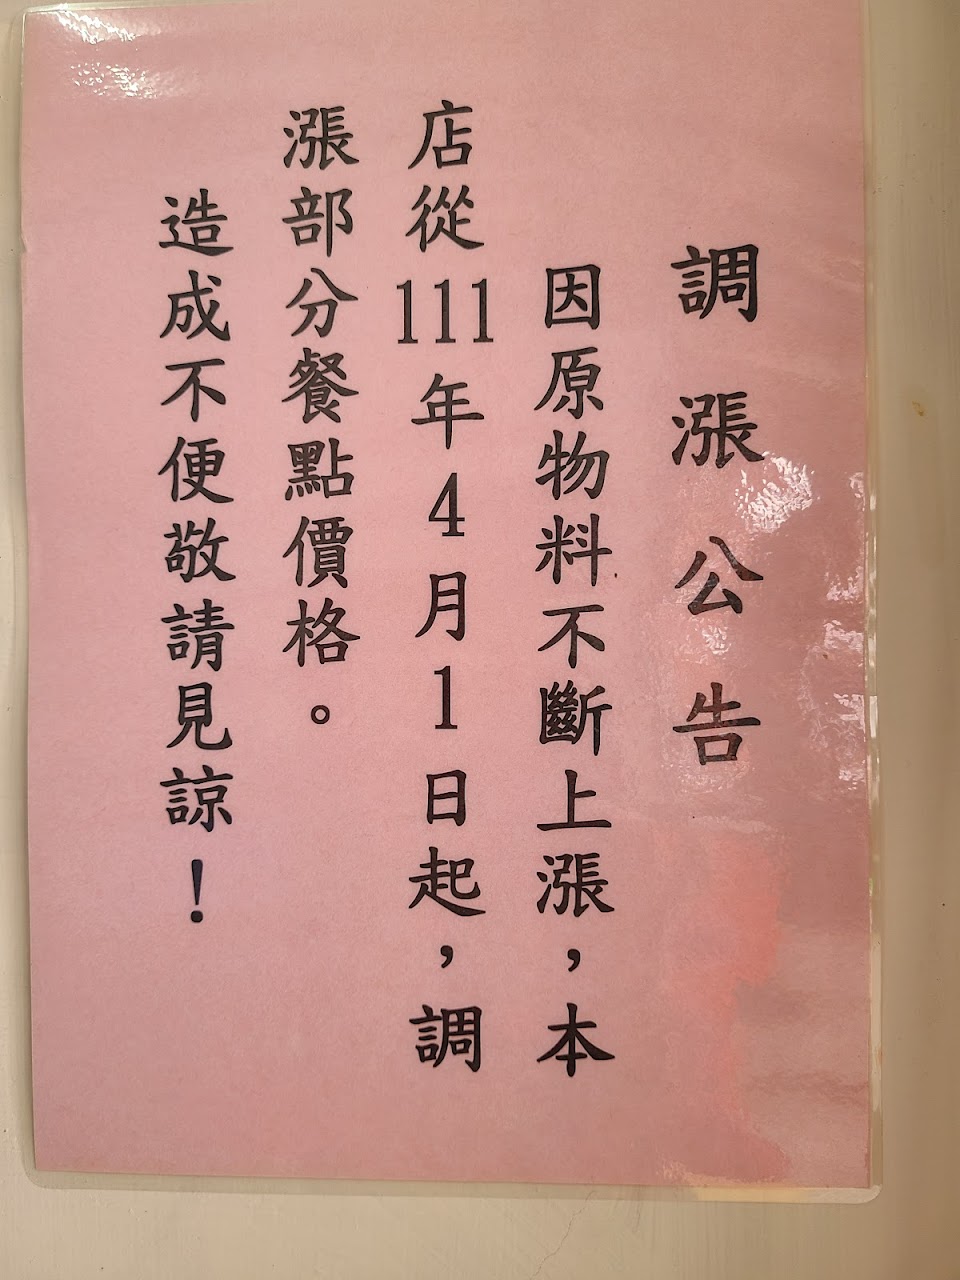 調漲公告
因原物料不斷上漲，本
店從111年4月1日起，調
漲部分餐點價格。
造成不便敬請見諒！